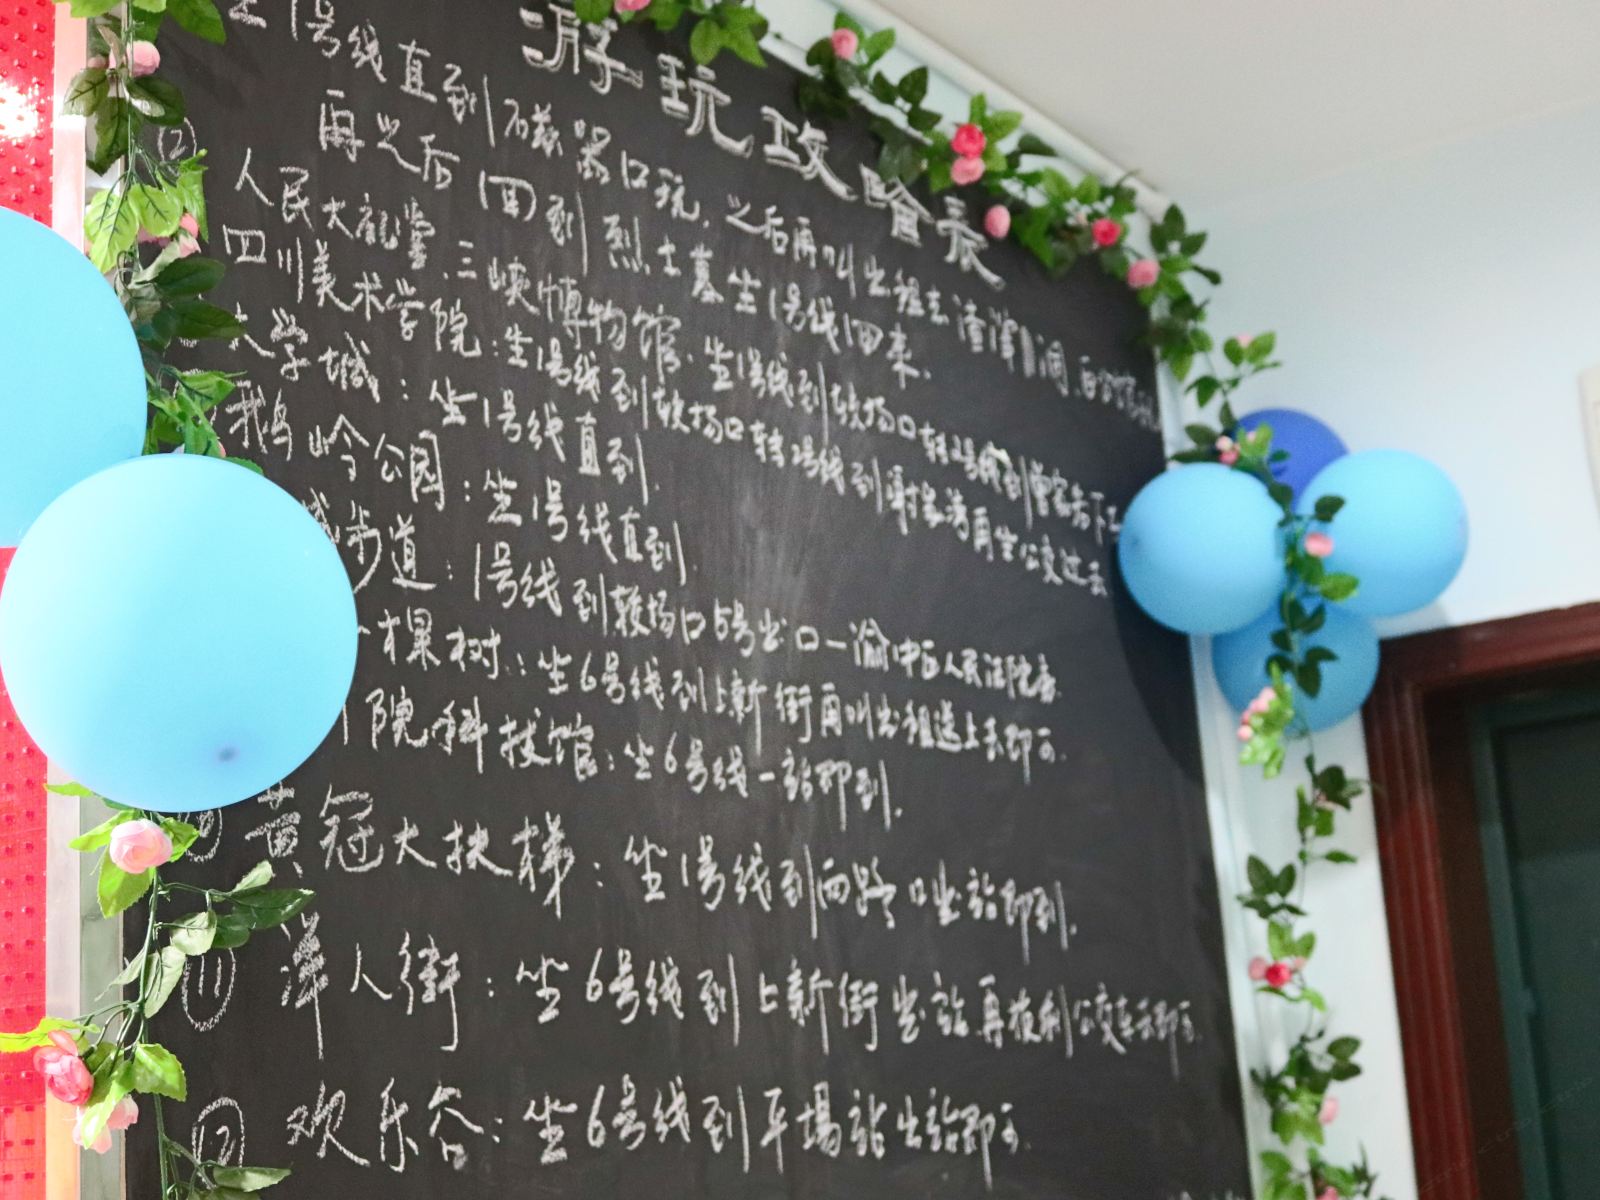 游玩攻略表
坐1号线直到磁器口玩,之后再叫出租去渣滓洞,白公馆
再之后回到烈士墓坐1号线回来.
② 人民大礼堂.三峡博物馆.坐1号线到较场口转2号线到曾家岩下
四川美术学院:坐1号线到较场口转2号线到谢家湾再坐公交过去
大学城:坐1号线直到.
鹅岭公园:坐1号线直到.
步道:1号线到较场口5号出口一渝中区人民法院旁.
一棵树:坐6号线到上新街再叫出租送上去即可.
院科技馆:坐6号线一站即到.
黄冠大扶梯:坐1号线到两路口出站即到.
⑪ 洋人街:坐6号线到上新街出站再夜利公交车去即可.
⑫ 欢乐谷:坐6号线到平場站出站即可.